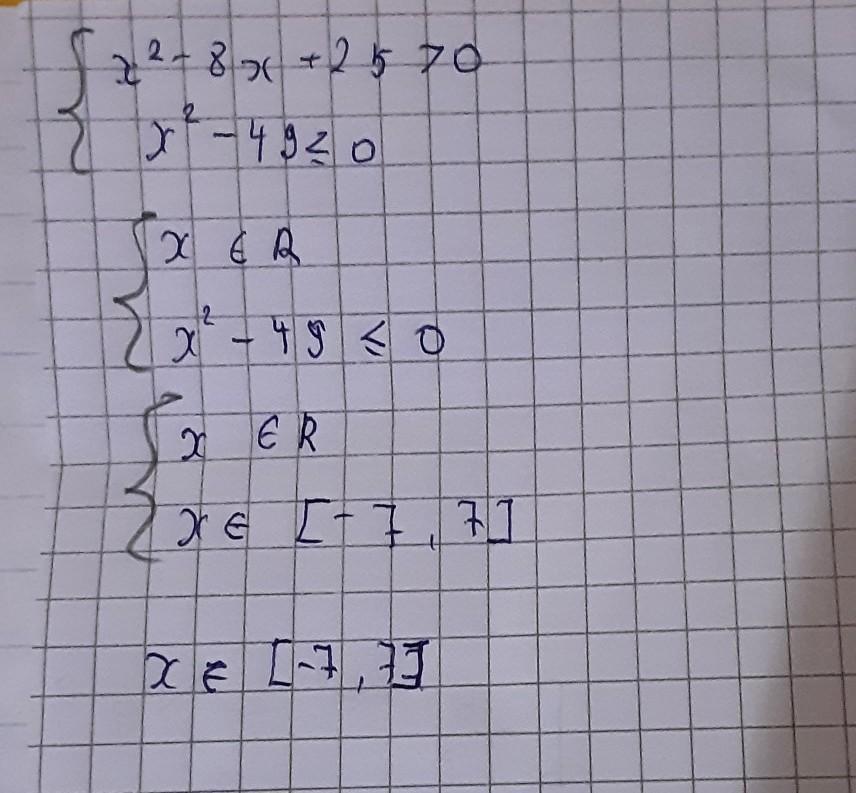 x² - 8x + 25 > 0
x² - 49 ≤ 0
x ∈ R
x² - 49 ≤ 0
x ∈ R
x ∈ [-7, 7]
x ∈ [-7, 7]